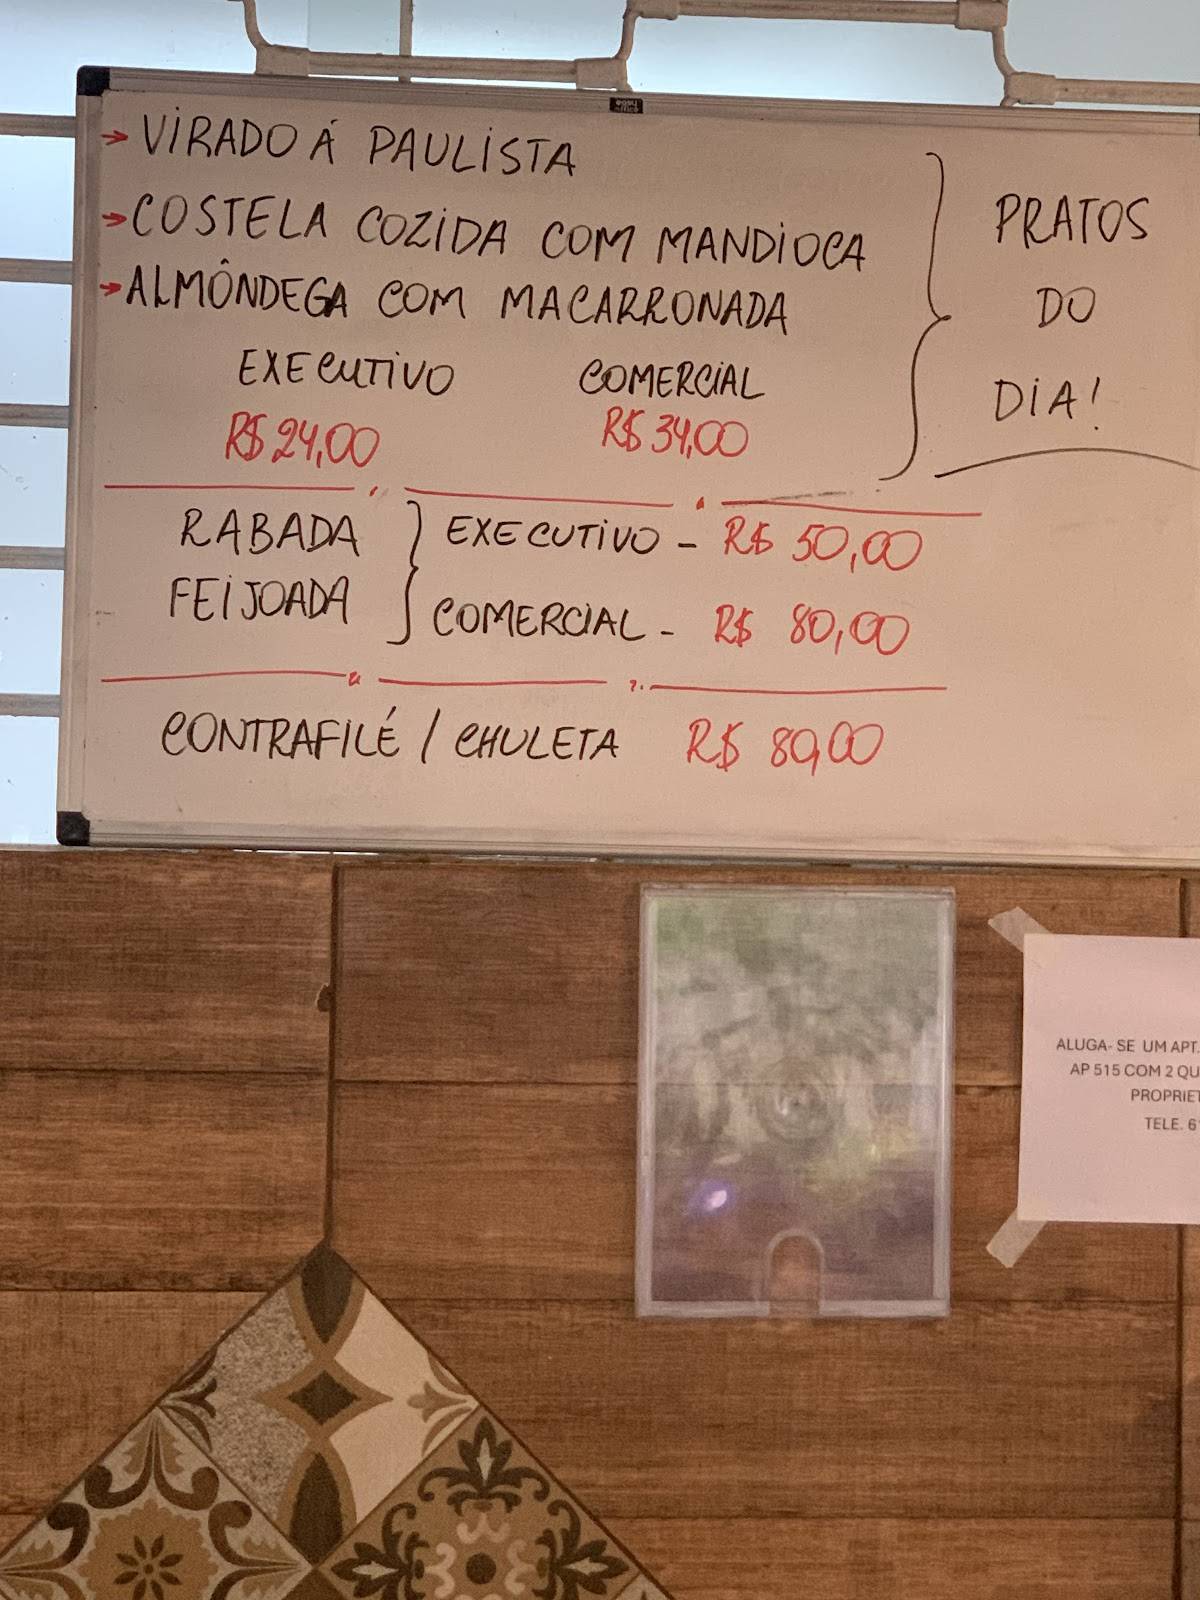 → VIRADO Á PAULISTA
→ COSTELA COZIDA COM MANDIOCA
→ ALMÔNDEGA COM MACARRONADA
PRATOS
DO
DIA!
EXECUTIVO COMERCIAL
R$ 24,00 R$ 34,00
RABADA
FEIJOADA
EXECUTIVO - R$ 50,00
COMERCIAL - R$ 80,00
CONTRAFILÉ / CHULETA R$ 80,00
ALUGA- SE UM APT.
AP 515 COM 2 QU
PROPRIET
TELE. 6